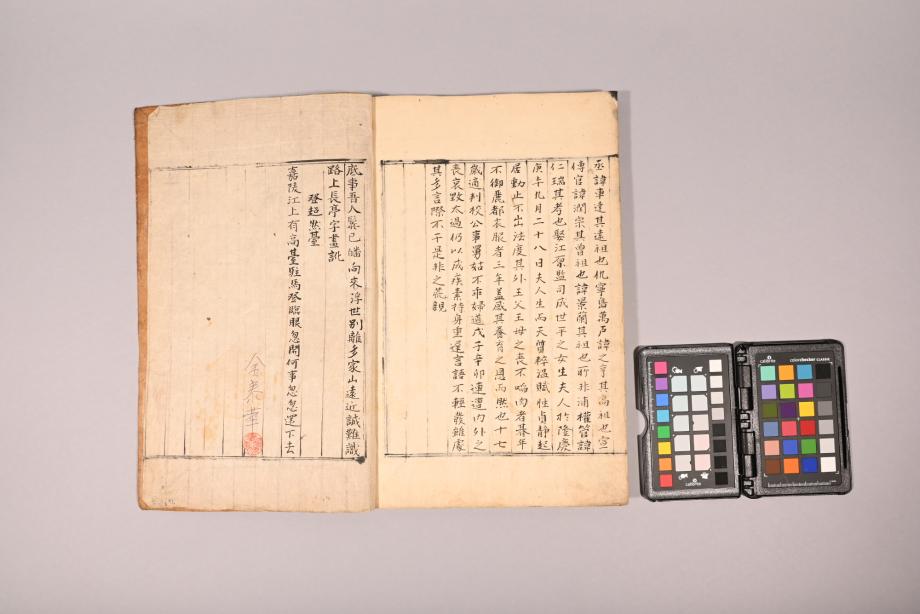 丞諱車達其遠祖也仇寧萬戶諱之亨其高祖也宣
傳官諱潤宗其曾祖也諱景蘭其祖也所非浦權管諱
仁瑞其考也娶江原監司成世平之女生夫人於隆慶
庚午九月二十八日夫人生而天質粹溫賦性貞靜起
居動止不出法度其外王父王母之喪不啗肉者朞年
不御麁都衣服者三年盖感其養育之恩而然也十七
歲適判校公事舅姑不乖婦道戊子辛卯連遭內外之
喪哀毀太過仍以成疾素持身重遲言語不輕發雖處
其多言際不干是非之
底事吾人鬂已皤向來浮世別離多家山遠近誠難識
路上長亭字畫訛
登超然臺
嘉陵江上有高臺駐馬登臨眼忽開何事忽忽還下去
金泰華
calibrite
calibrite
colorchecker CLASSIC